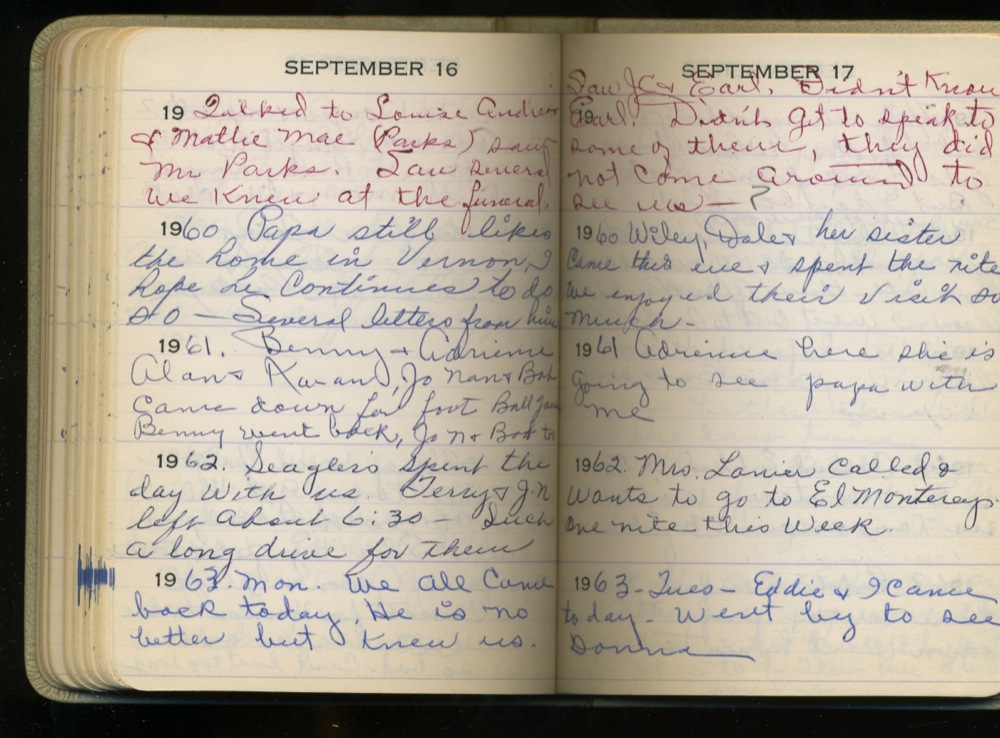 SEPTEMBER 16
19 Talked to Louise Andrew
& Mattie Mae (Parks) saw
Mr Parks. Saw several
we knew at the funeral,
1960 Papa still likes
the home in Vernon, I
hope he continues to do
so — Several letters from him
1961. Benny & Adrienne
Alan & Karan, Jo Nan & Bob
came down for foot Ball game
Benny went back, Jo N & Bob to
1962. Seaglers spent the
day with us. Terry & J.N
left about 6:30 - Such
a long drive for them
1963. Mon. We all came
back today. He is no
better but knew us.
SEPTEMBER 17
Saw JC & Earl. Didn't know
19 Earl. Didn't get to speak to
some of them, they did
not come around to
see us — ?
1960 Wiley, Dale & her sister
came this eve & spent the nite
We enjoyed their visit so
much -
1961 Adrienne here she is
going to see papa with
me
1962. Mrs. Lanier called &
wants to go to El Monterey
one nite this week.
1963 - Tues - Eddie & I came
today - Went by to see
Donna